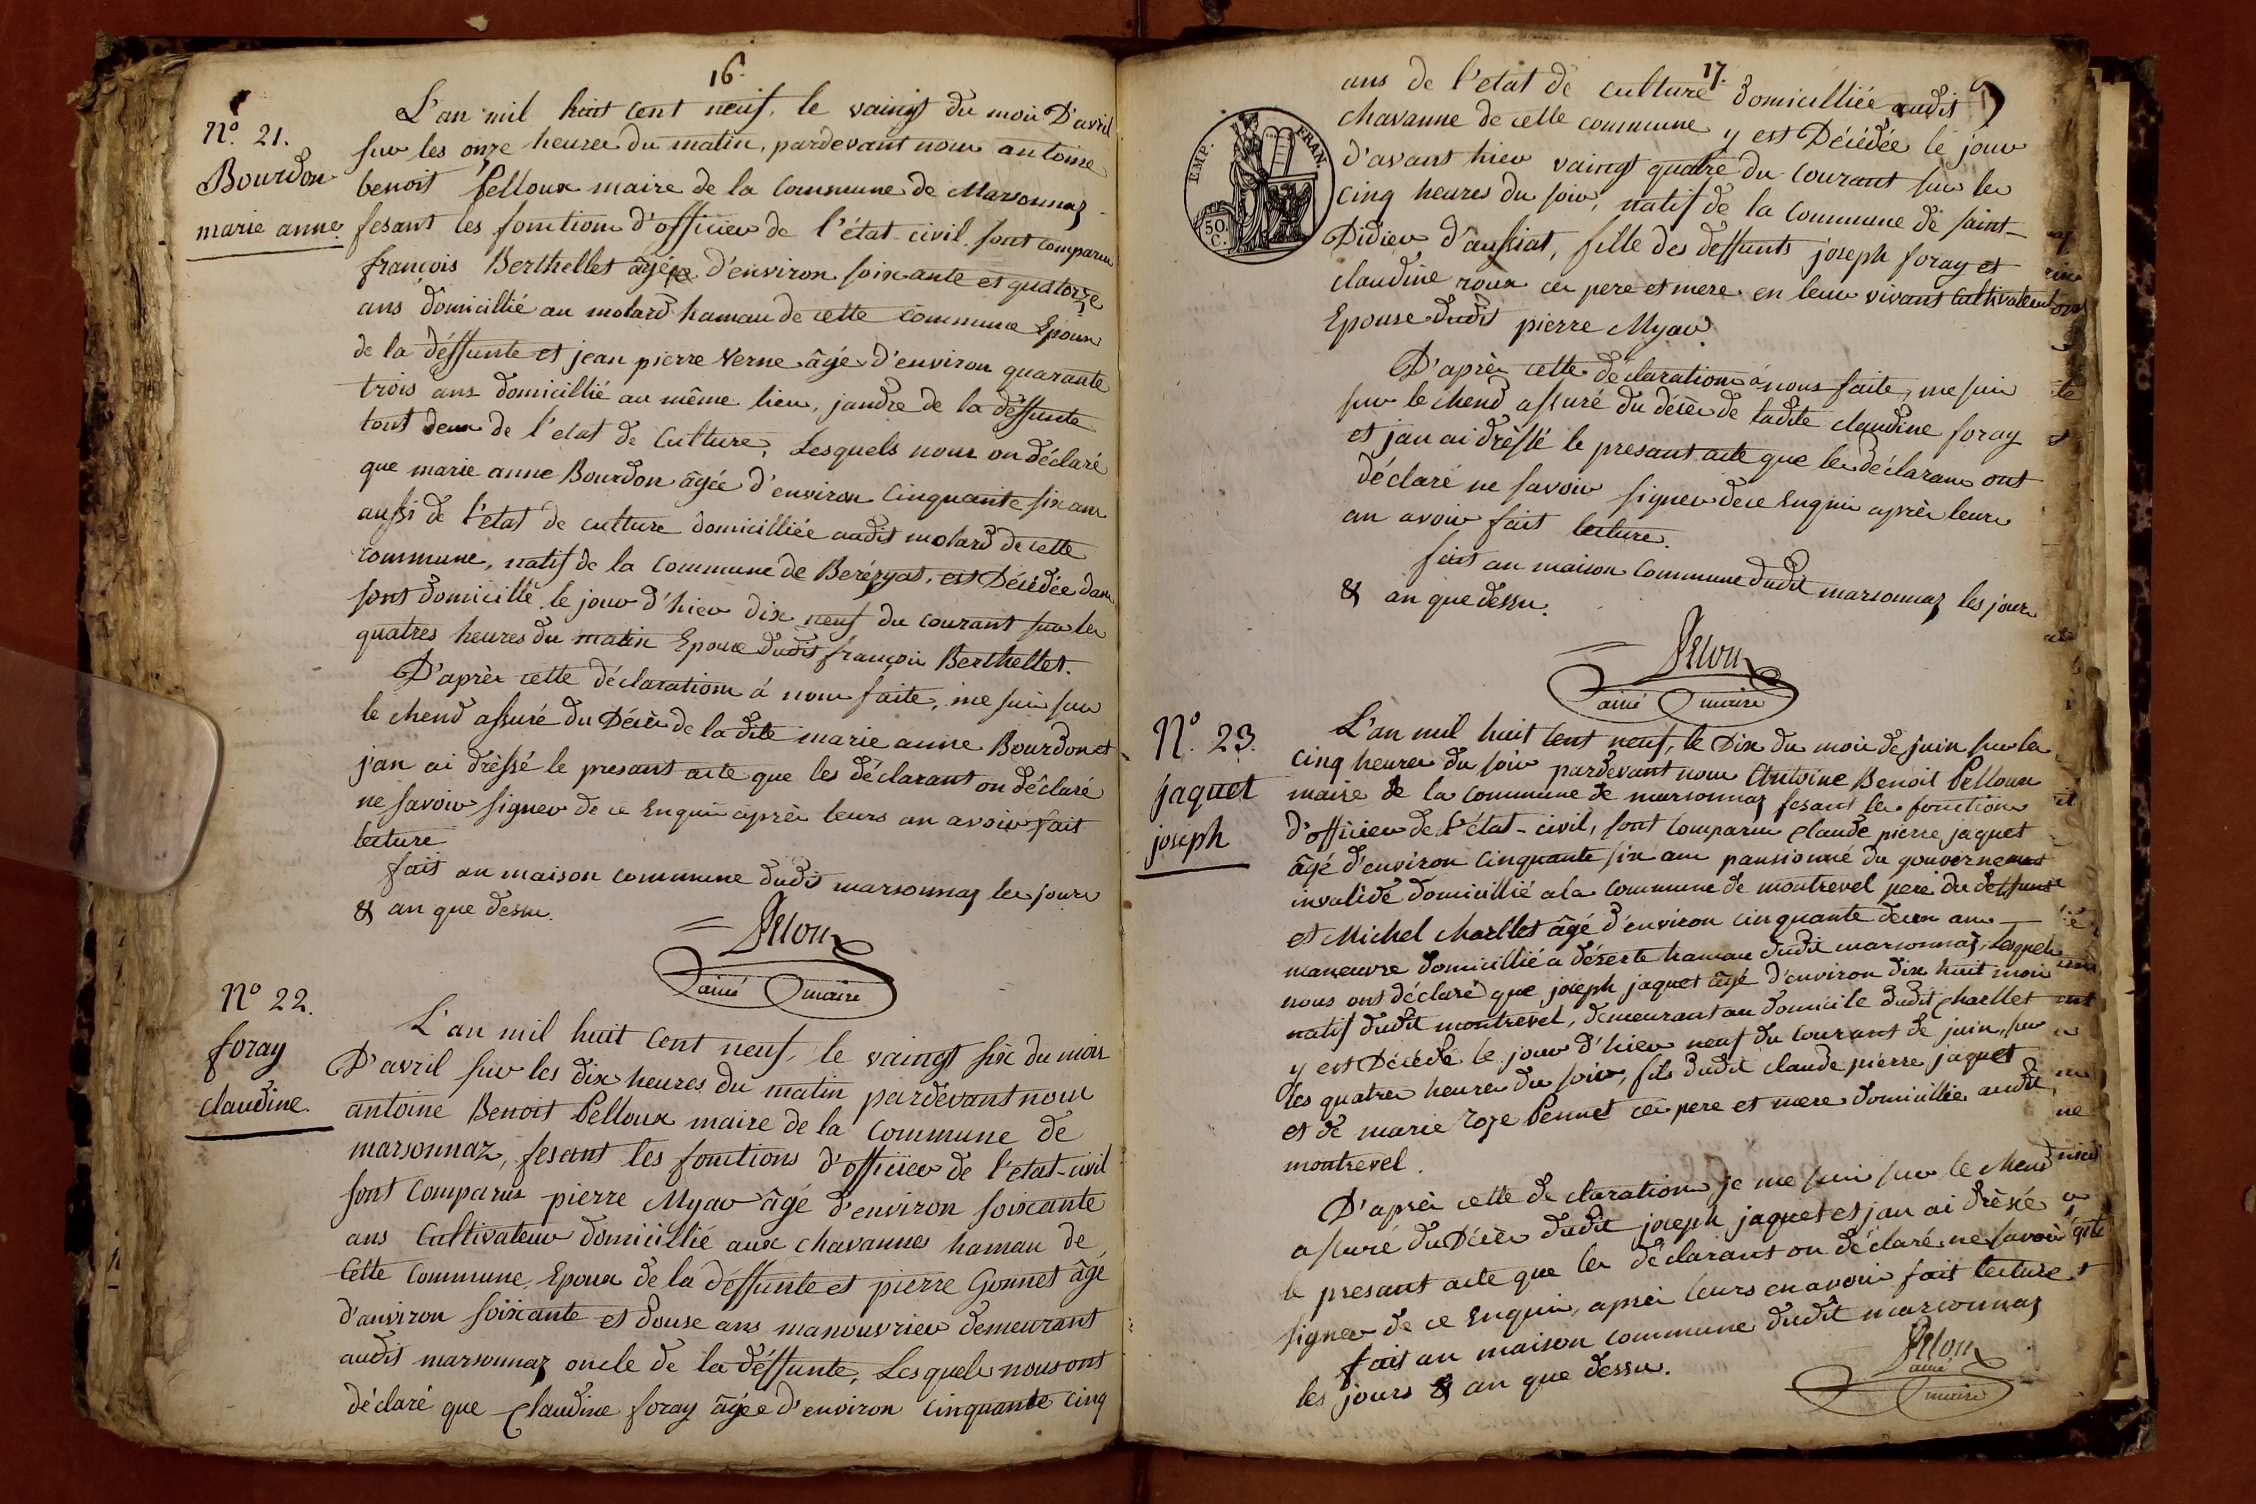 16.
N.° 21.
Bourdon
marie anne.
L'an mil huit cent neuf, le vaingt du mois D'avril
sur les onze heures du matin, pardevant nous antoine
benoit Pelloux maire de la Commune de Marsonnaz
fesant les fonctions d'officier de l'état-civil sont comparus
françois Berthellet âgée d'environ soixante et quatorze
ans domicillié au molard hamau de cette commune Epoux
de la déffunte et jean pierre Verne âgé d'environ quarante
trois ans domicillié au même lieu, jandre de la déffunte
tout deux de l'etat de Culture, Lesquels nous on déclaré
que marie anne Bourdon âgée d'environ Cinquante six ans
aussi de l'etat de culture domicilliée audit molard de cette
commune, natif de la Commune de Beréziat, est Décédée dans
sont domicille le jour d'hier dix neuf du courant sur les
quatres heures du matin Epouse dudit françois Berthellet.
D'après cette déclaration á nous faite, me suis sur
le chend assuré du Décès de ladite marie anne Bourdon et
j'an ai drèssé le presant acte que les déclarant on déclaré
ne savoir signer de ce Enquis après leurs an avoir fait
lecture
fait an maison commune dudit marsonnaz les jours
& an que dessu.
Pelloux
ainé maire
N.° 22.
foray
claudine.
L'an mil huit Cent neuf, le vaingt six du mois
D'avril sur les dix heures du matin pardevant nous
antoine Benoit Pelloux maire de la Commune de
marsonnaz, fesant les fonctions d'officier de l'etat-civil
sont Comparus pierre Myar âgé d'environ soixante
ans Cultivateur domicillié aux chavannes hamau de
Cette Commune Epoux de la déffunte et pierre Gonnet âgé
d'anviron soixante et douse ans manouvrier demeurant
audit marsonnaz oncle de la déffunte, Lesquels nous ont
déclaré que Claudine foray âgée d'environ Cinquante cinq
17.
EMP. FRAN.
50 C.
ans de l'etat de culture domicilliée audit
chavanne de cette commune y est Décédée le jour
d'avant hier vaingt quatre du courant sur les
cinq heures du soir, natif de la Commune de saint-
Didier d'aussiat, fille des deffunts joseph foray et
claudine roux ces pere et mere en leur vivant cultivateur
Epouse dudit pierre Myar.
D'après cette déclaration á nous faite, me suis
sur le chend assuré du décès de ladite claudine foray
et j'an ai drèssé le presant acte que les déclarans ont
déclaré ne savoir signer de ce Enquis après leurs
an avoir fait lecture.
fait an maison Commune dudit marsonnaz les jours
& an que dessu.
Pelloux
ainé maire
N.° 23.
jaquet
joseph
L'an mil huit Cent neuf, le Dix du mois de juin sur les
cinq heures du soir pardevant nous Antoine Benoit Pelloux
maire de la Commune de marsonnaz fesant les fonctions
d'officier de l'état-civil, sont Comparus Claude pierre jaquet
âgé d'environ Cinquante six ans pansionné du gouvernement
invalide domicillié a la commune de montrevel pere du deffunt
et Michel charllet âgé d'environ cinquante deux ans
maneuvre domicillié a déserte hamau dudit marsonnaz, Lesquels
nous ont déclaré que joseph jaquet âgé d'environ dix huit mois
natif dudit montrevel, demeurant au domicile dudit charllet
y est Décédé le jour d'hier neuf du courant de juin, sur
les quatres heures du soir, fils dudit claude pierre jaquet
et de marie roze Pennet ces pere et mere domicillie audit
montrevel.
D'après cette declaration je me suis sur le chend
assuré du Décès dudit joseph jaquet et j'an ai drèssé
le presant acte que les déclarant on déclaré ne savoir
signer de ce Enquis, après leurs en avoir fait lecture
fait an maison commune dudit marsonnaz
les jours & an que dessu.
Pelloux
ainé
maire